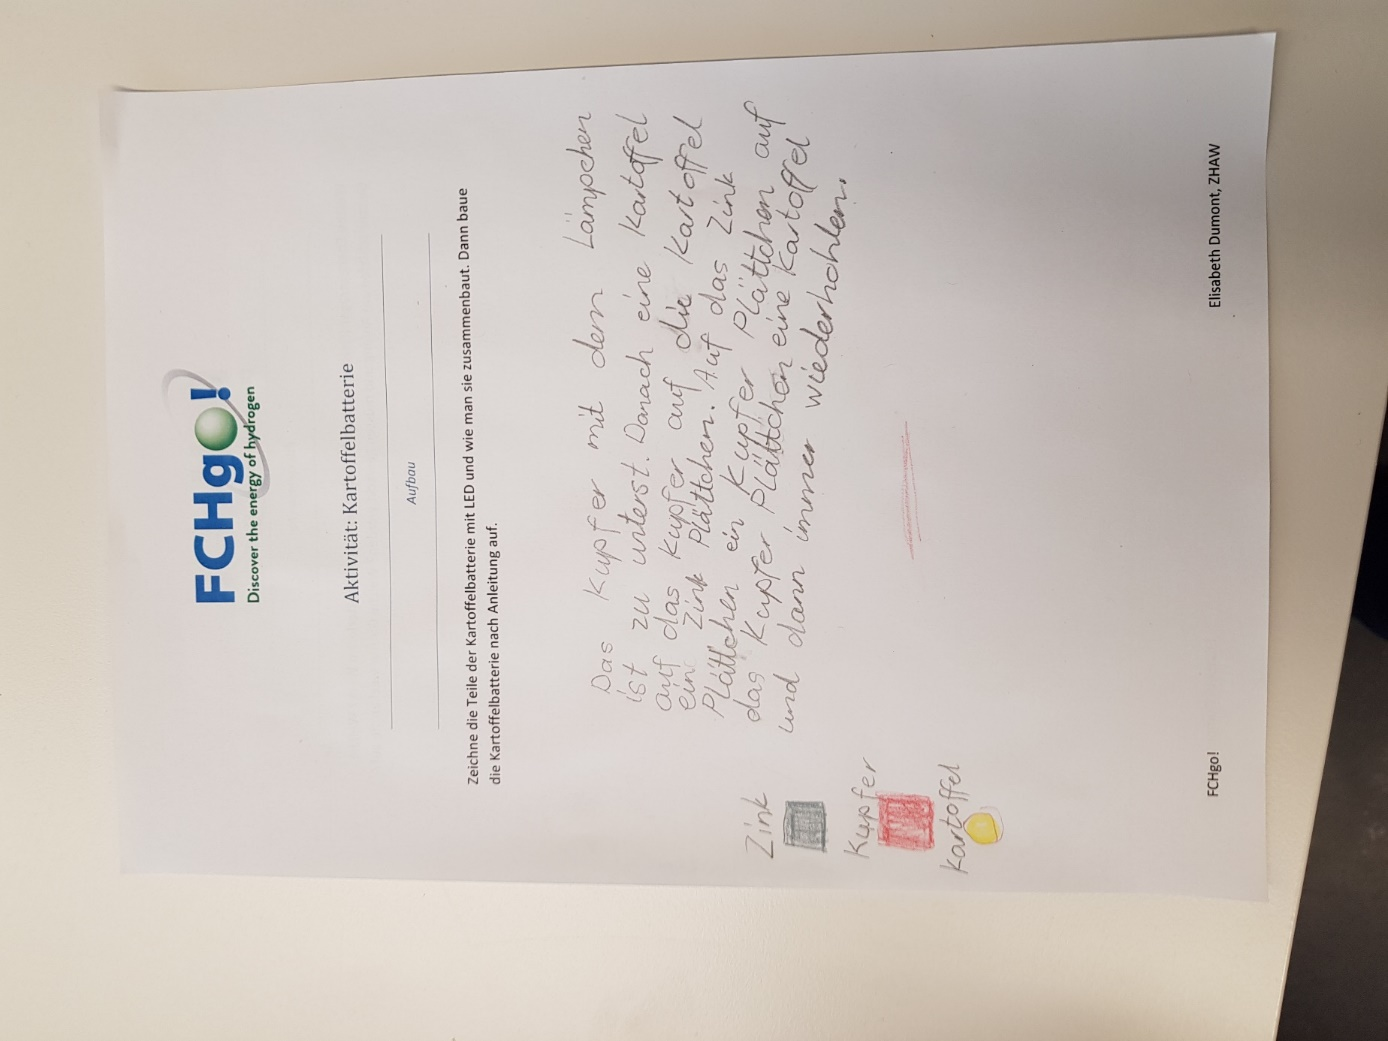 FCHgo!
Discover the energy of hydrogen
Aktivität: Kartoffelbatterie
Aufbau
Zeichne die Teile der Kartoffelbatterie mit LED und wie man sie zusammenbaut. Dann baue
die Kartoffelbatterie nach Anleitung auf.
Das Kupfer mit dem Lämpchen
ist zu unterst. Danach eine Kartoffel
auf das Kupfer auf die Kartoffel
ein Zink Plättchen. Auf das Zink
Plättchen ein Kupfer Plättchen auf
das Kupfer Plättchen eine Kartoffel
und dann immer wiederhohlen.
Zink
Kupfer
Kartoffel
FCHgo!
Elisabeth Dumont, ZHAW